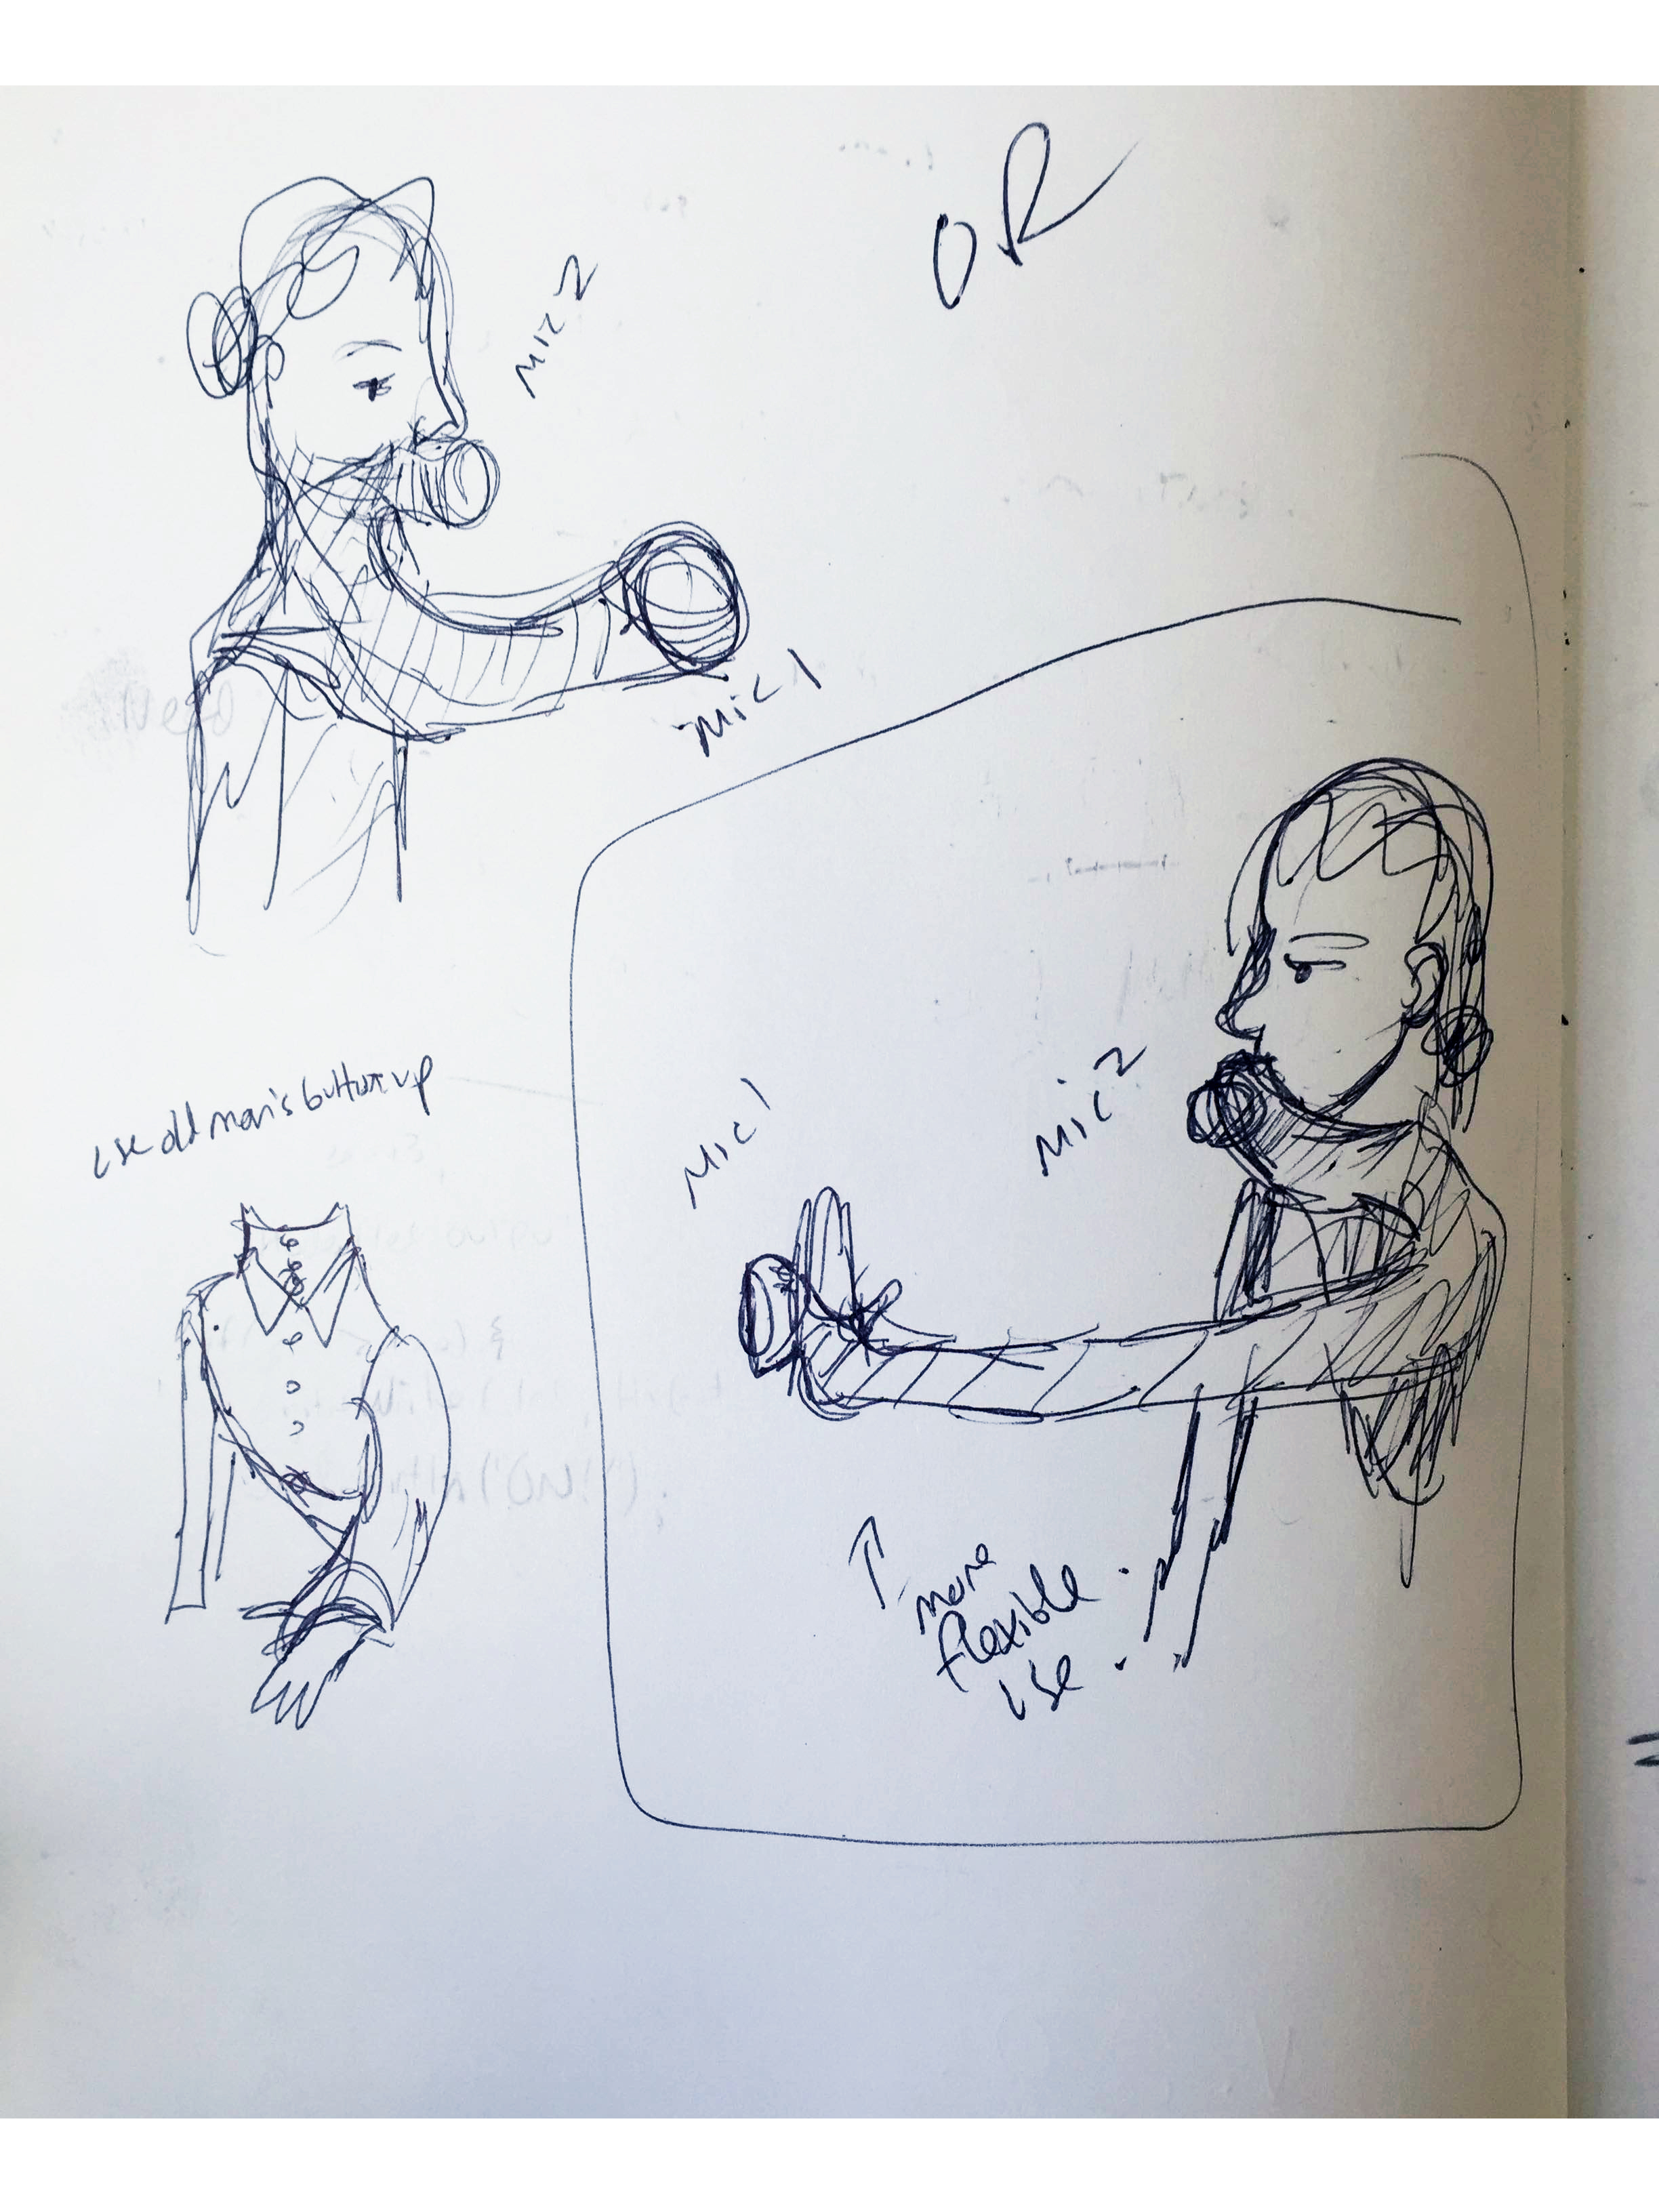 OR
Mic 2
Mic 1
use old man's button up
Mic 1
Mic 2
↑ more
flexible
use.